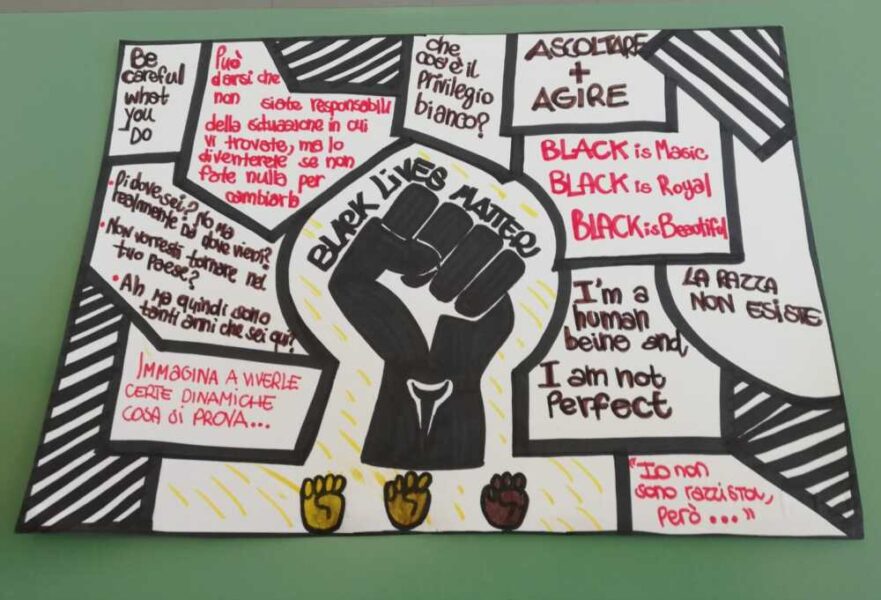 Be
careful
what
you
DO
Può
darsi che
non siate responsabili
della situazione in cui
vi trovate, ma lo
diventerete se non
fate nulla per
cambiarla
che
cos'è il
Privilegio
bianco?
ASCOLTARE
+
AGIRE
BLACK is Magic
BLACK is Royal
BLACK is Beautiful
• Di dove sei? No ma
realmente da dove vieni?
• Non vorresti tornare nel
tuo paese?
• Ah ma quindi sono
tanti anni che sei qui?
BLACK LIVES MATTER!
LA RAZZA
NON ESISTE
I'm a
human
being and,
I am not
Perfect
IMMAGINA A VIVERLE
CERTE DINAMICHE
COSA SI PROVA...
"Io non
sono razzista,
Però..."